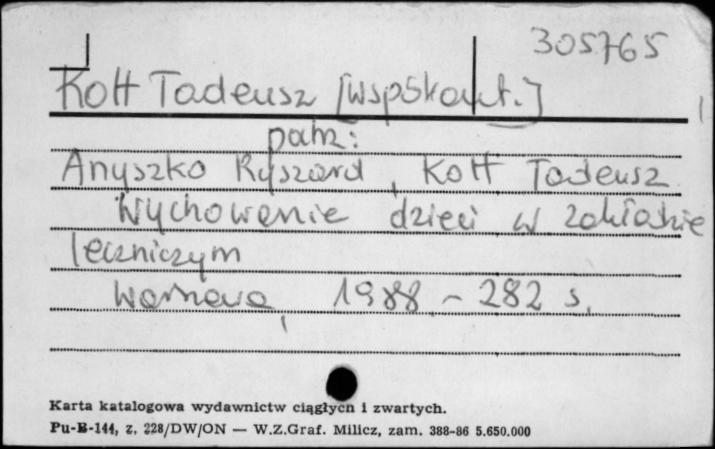 305765
Kott Tadeusz [współaut.]
patrz:
Anyszko Ryszard, Kott Tadeusz
Wychowanie dzieci w zakładzie
leczniczym
Warszawa, 1988. - 282 s.
Karta katalogowa wydawnictw ciągłych i zwartych.
Pu-B-144, z. 228/DW/ON — W.Z.Graf. Milicz, zam. 388-86 5.650.000